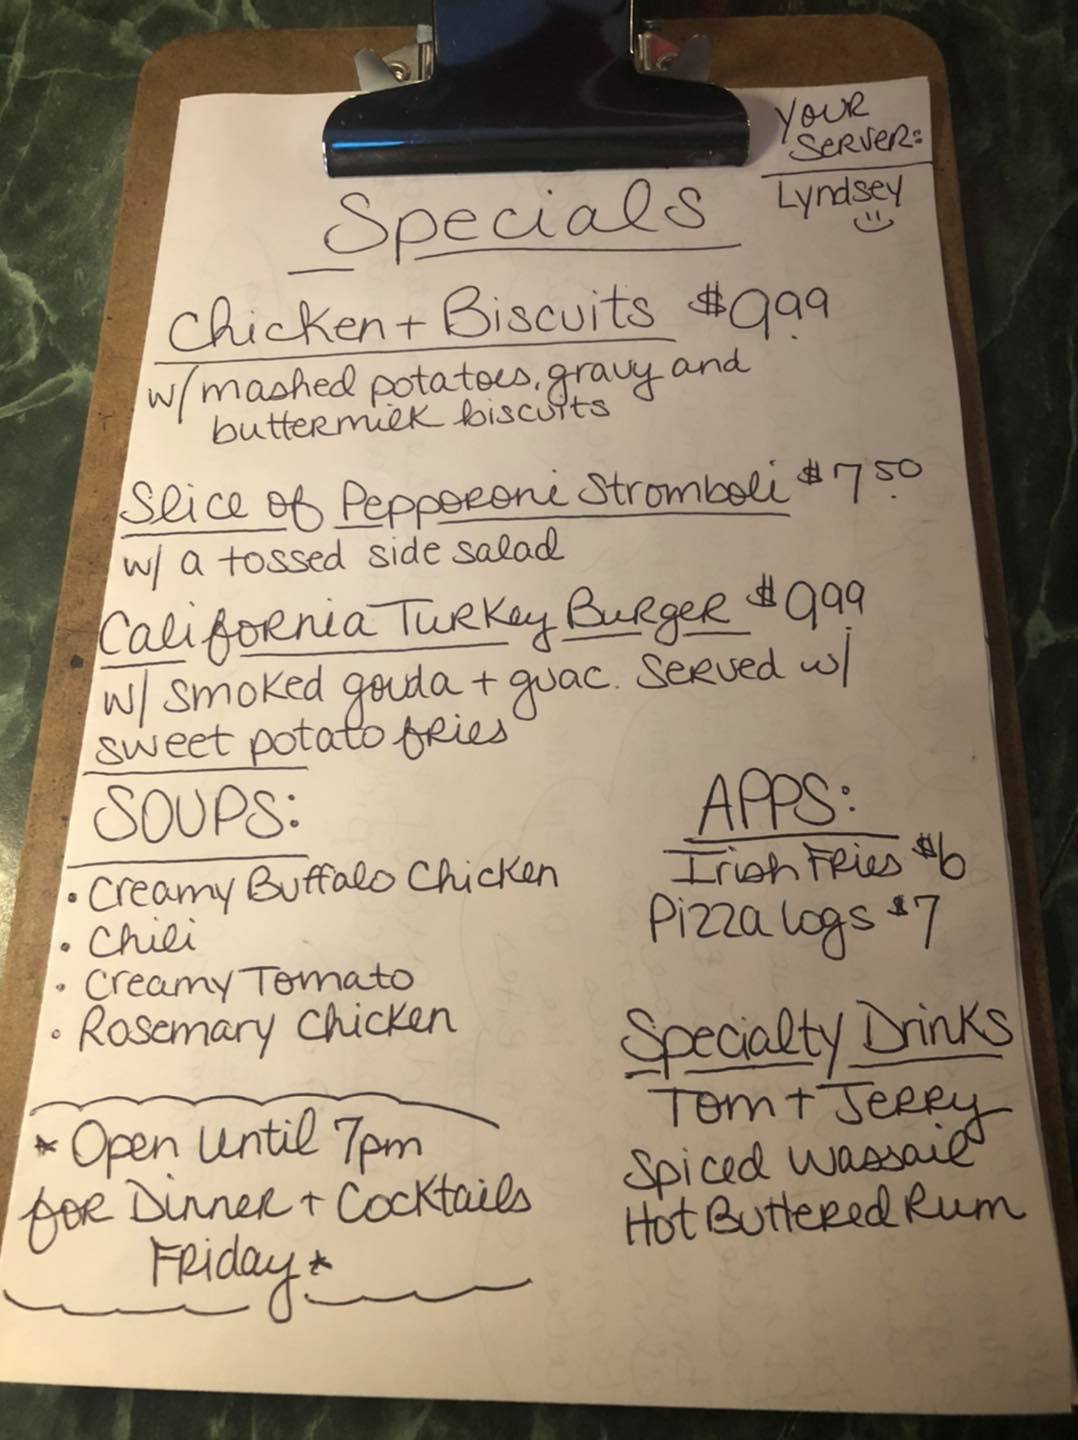 YOUR
SERVER:
Lyndsey
Specials
Chicken + Biscuits $9.99
w/ mashed potatoes, gravy and
buttermilk biscuits
Slice of Pepporoni Stromboli $7.50
w/ a tossed side salad
California Turkey Burger $9.99
w/ smoked gouda + guac. Served w/
sweet potato fries
SOUPS:
• Creamy Buffalo Chicken
• Chili
• Creamy Tomato
• Rosemary Chicken
APPS:
Irish Fries $6
Pizza Logs $7
Specialty Drinks
Tom + Jerry
Spiced Wassail
Hot Buttered Rum
* Open Until 7pm
for Dinner + Cocktails
Friday *